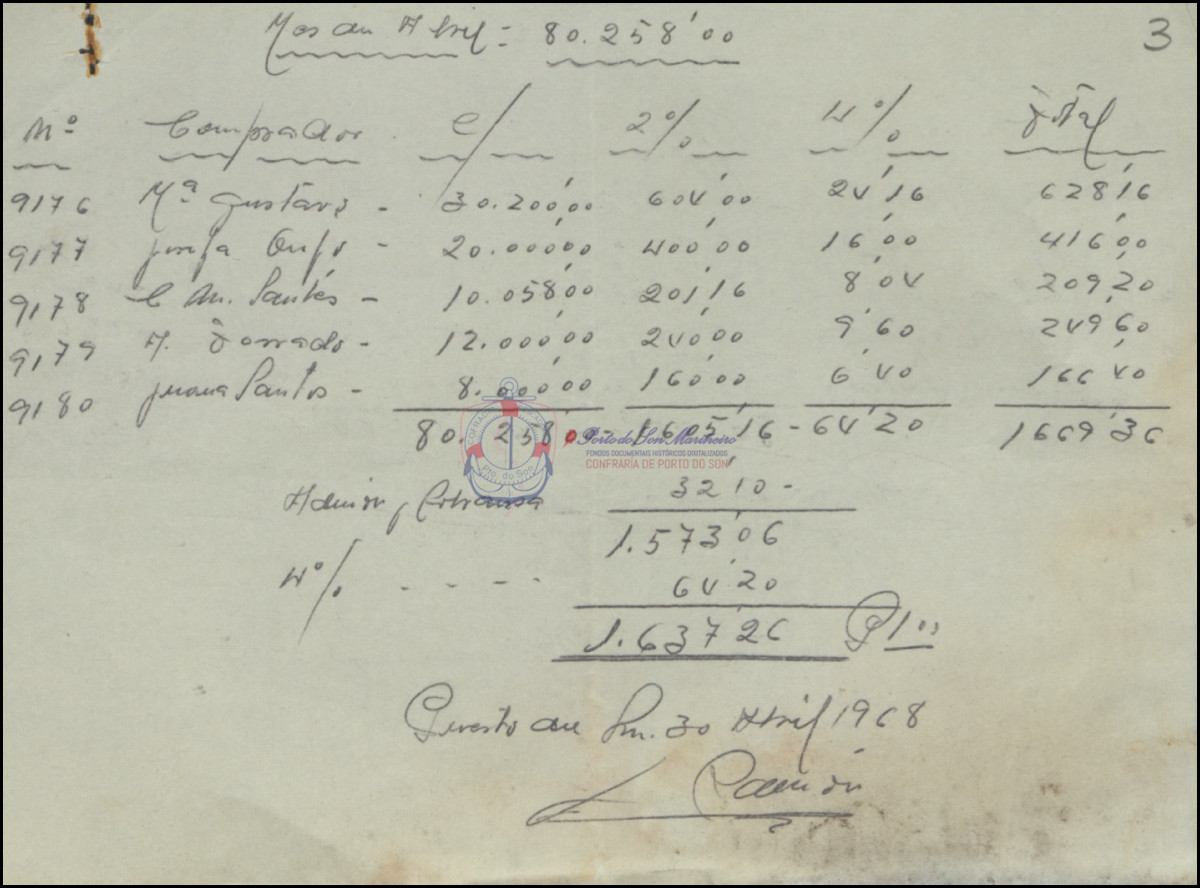 Mes de Abril = 80.258'00
3
Nº Comprador c/ 2% 4% Total
9176 Mª Gustavo - 30.200'00 604'00 24'16 628'16
9177 20.000'00 400'00 16'00 416'00
9178 C M. Santos - 10.058'00 201'16 8'04 209'20
9179 A. Dorrado - 12.000'00 240'00 9'60 249'60
9180 Juana Santos - 8.000'00 160'00 6'40 166'40
80.258'00 - 1.605'16 - 64'20 1669'36
Admon y Cobranza 32'10 -
1.573'06
4% - - - - 64'20
1.637'26
Puerto del Son. 30 Abril 1968
Ramón
CONFRARÍA
Pto. do Son
Porto do Son Mariñeiro
FONDOS DOCUMENTAIS HISTÓRICOS DIXITALIZADOS
CONFRARÍA DE PORTO DO SON